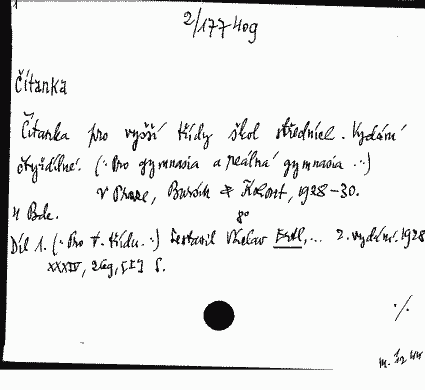 2/177409
Čítanka
Čítanka pro vyšší třídy škol středních. Vydání
čtyřdílné. (: Pro gymnasia a reálná gymnasia :)
v Praze, Bursík & Kohout, 1928-30.
4 Bde. 8°
Díl 1. (: Pro V. třídu. :) Sestavil Václav Ertl,... 2. vydání. 1928
XXXIV, [1] S.
./.